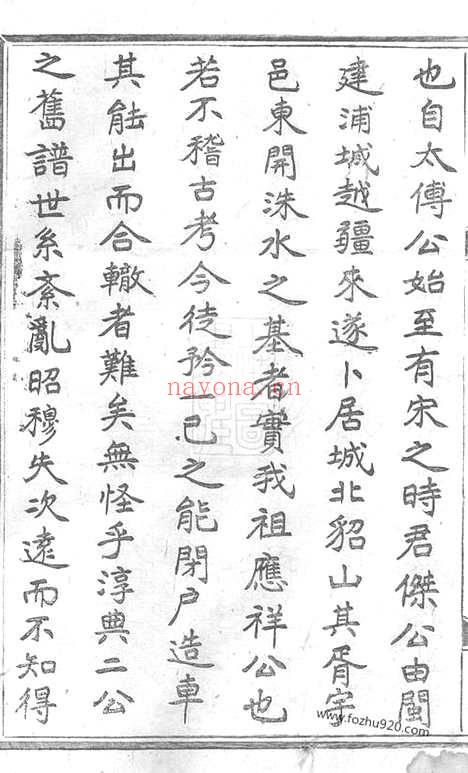 也自太傅公始至有宋之時君傑公由閩
建浦城越疆來遂卜居城北貂山其胥宇
邑東開洙水之基者實我祖應祥公也
若不稽古考今徒矜一己之能閉户造車
其能出而合轍者難矣無怪乎淳典二公
之舊譜世系紊亂昭穆失次遠而不知得
nayona.cn
www.fozhu920.com